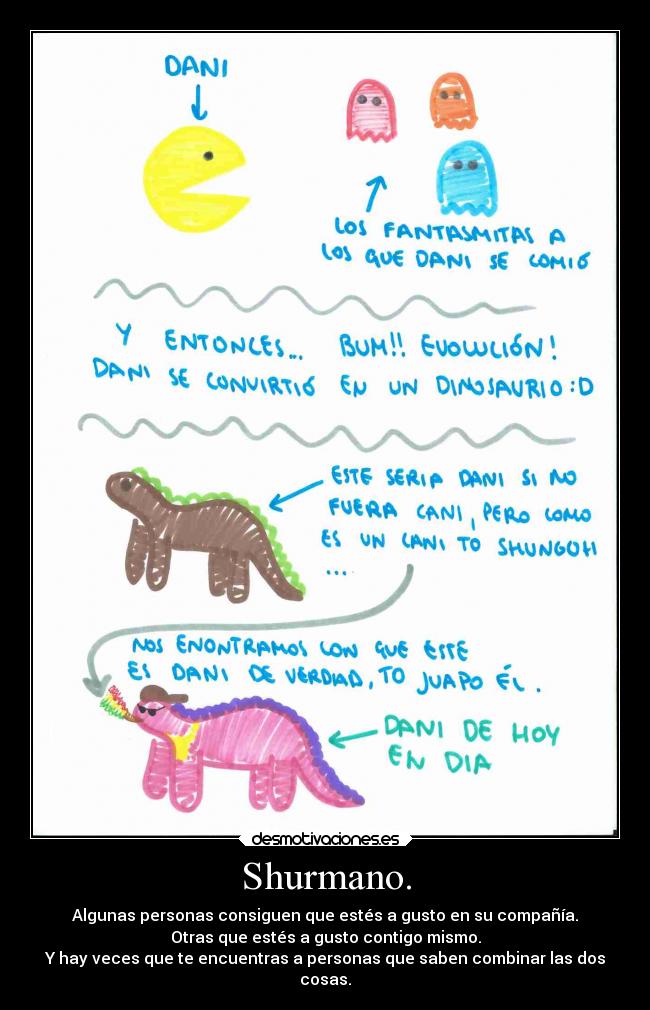 DANI
LOS FANTASMITAS A
LOS QUE DANI SE COMIÓ
Y ENTONCES... BUM!! EVOLUCIÓN!
DANI SE CONVIRTIÓ EN UN DINOSAURIO :D
ESTE SERIA DANI SI NO
FUERA CANI, PERO COMO
ES UN CANI TO SHUNGOH
...
NOS ENONTRAMOS CON QUE ESTE
ES DANI DE VERDIAD, TO JUAPO ÉL.
DANI DE HOY
EN DIA
desmotivaciones.es
Shurmano.
Algunas personas consiguen que estés a gusto en su compañía.
Otras que estés a gusto contigo mismo.
Y hay veces que te encuentras a personas que saben combinar las dos
cosas.